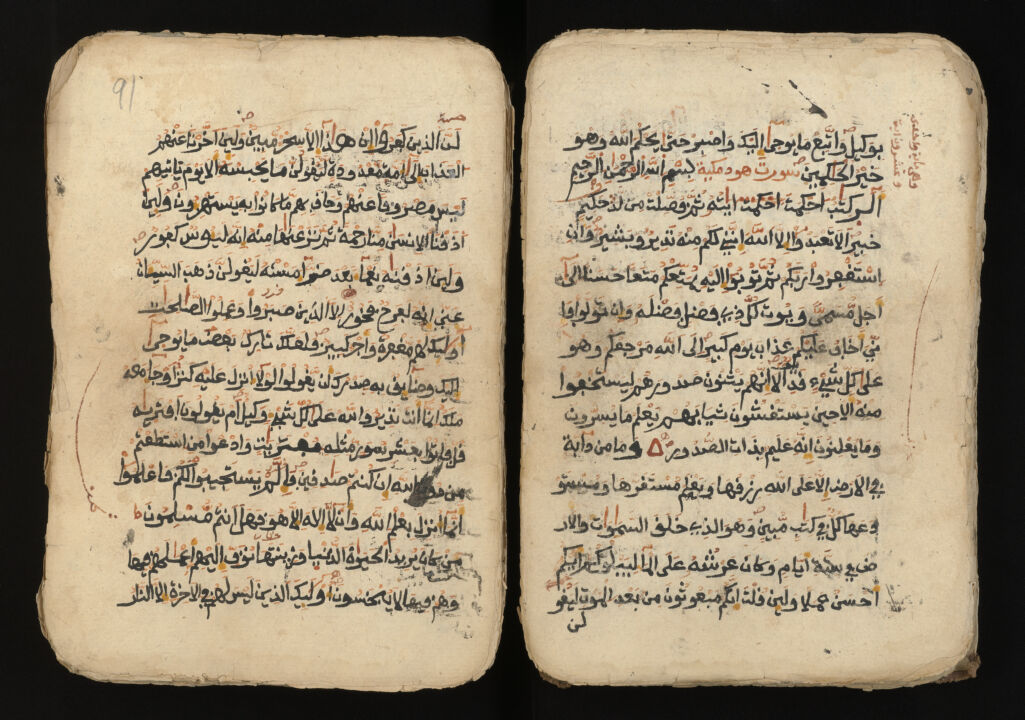 بوكيل واتبع ما يوحى إليك واصبر حتى يحكم الله وهو
خير الحكمين سورت هود مكية بسم الله الرحمن الرحيم
الر كتب احكمت ايته ثم فصلت من لدن حكيم
خبير الا تعبدوا إلا الله إنني لكم منه نذير وبشير وأن
استغفروا ربكم ثم توبوا إليه يمتعكم متعا حسنا الى
اجل مسمى ويوت كل ذي فضل فضله وإن تولوا فإ
ني أخاف عليكم عذاب يوم كبير إلى الله مرجعكم وهو
على كل شيء قدير ألا انهم يثنون صدورهم ليستخفوا
منه الا حين يستغشون ثيابهم يعلم ما يسرون
وما يعلنون إنه عليم بذات الصدور وما من دابة
في الارض إلا على الله رزقها ويعلم مستقرها ومستو
دعها كل في كتب مبين وهو الذي خلق السموات والار
ض في ستة أيام وكان عرشه على الما ليبلوكم ايكم
احسن عملا ولين قلت إنكم مبعوثون من بعد الموت ليقو
لن
91
لن الذين كفروا إن هذا إلا سحر مبين ولين اخرنا عنهم
العذاب إلى أمة معدودة ليقولن ما يحبسه الا يوم ياتيهم
ليس مصروفا عنهم وحاق بهم ما كانوا به يستهزون ولين
اذقنا الانسن منا رحمة ثم نزعنها منه إنه ليوس كفور
ولين اذقنه نعما بعد ضرا مسته ليقولن ذهب السيات
عني إنه لفرح فخور إلا الذين صبروا وعملوا الصلحت
أوليك لهم مغفرة واجر كبير فلعلك تارك بعض ما يوحى
إليك وضايق به صدرك أن يقولوا لولا انزل عليه كنز او جا معه
ملك إنما أنت نذير والله على كل شيء وكيل أم يقولون افتريه
قل فاتوا بعشر سور مثله مفتريت وادعوا من استطعتم
من دون الله ان كنتم صدقين فإلم يستجيبوا لكم فاعلموا
انما انزل بعلم الله وأن لا إله إلا هو فهل انتم مسلمون
من كان يريد الحيوة الدنيا وزينتها نوف إليهم اعملهم فيها
وهم فيها لا يبخسون أوليك الذين ليس لهم في الاخرة إلا النار